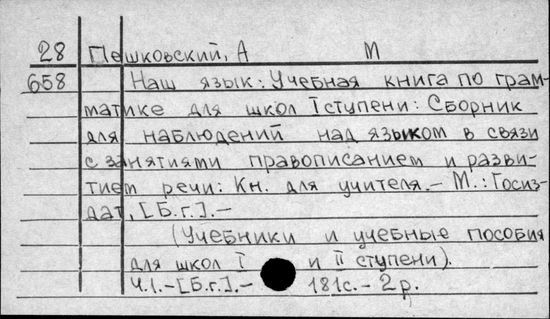 28 Пешковский, А М
658 Наш язык: Учебная книга по грам-
матике для школ I ступени: Сборник
для наблюдений над языком в связи
с занятиями правописанием и разви-
тием речи: Кн. для учителя.- М.: Госиз-
дат, [Б.г.].-
(Учебники и учебные пособия
для школ I и II ступени).
Ч.1.-[Б.г.].- 181с.- 2р.